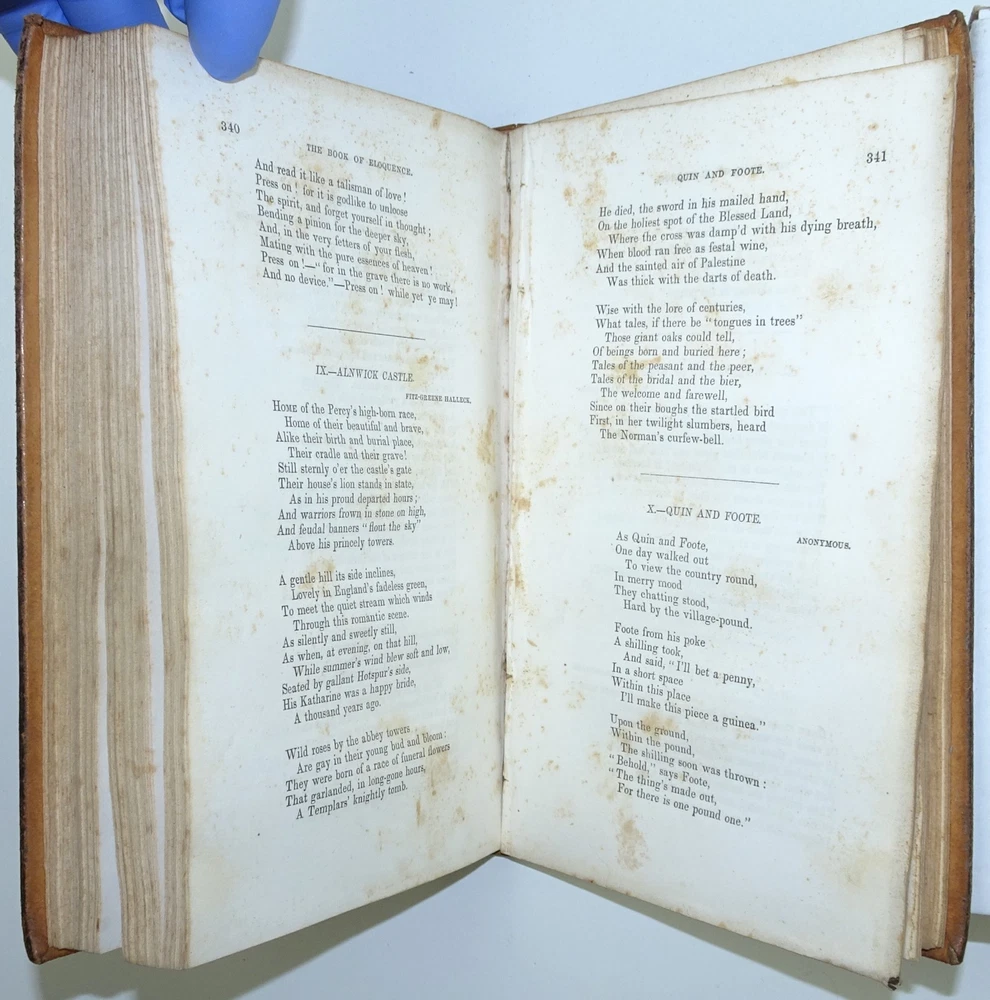 340
THE BOOK OF ELOQUENCE.
And read it like a talisman of love!
Press on! for it is godlike to unloose
The spirit, and forget yourself in thought;
Bending a pinion for the deeper sky,
And, in the very fetters of your flesh,
Mating with the pure essences of heaven!
Press on!—"for in the grave there is no work,
And no device."—Press on! while yet ye may!
IX.—ALNWICK CASTLE.
FITZ-GREENE HALLECK.
HOME of the Percy's high-born race,
Home of their beautiful and brave,
Alike their birth and burial place,
Their cradle and their grave!
Still sternly o'er the castle's gate
Their house's lion stands in state,
As in his proud departed hours;
And warriors frown in stone on high,
And feudal banners "flout the sky"
Above his princely towers.
A gentle hill its side inclines,
Lovely in England's fadeless green,
To meet the quiet stream which winds
Through this romantic scene.
As silently and sweetly still,
As when, at evening, on that hill,
While summer's wind blew soft and low,
Seated by gallant Hotspur's side,
His Katharine was a happy bride,
A thousand years ago.
Wild roses by the abbey towers
Are gay in their young bud and bloom:
They were born of a race of funeral flowers
That garlanded, in long-gone hours,
A Templars' knightly tomb.
341
QUIN AND FOOTE.
He died, the sword in his mailed hand,
On the holiest spot of the Blessed Land,
Where the cross was damp'd with his dying breath,
When blood ran free as festal wine,
And the sainted air of Palestine
Was thick with the darts of death.
Wise with the lore of centuries,
What tales, if there be "tongues in trees"
Those giant oaks could tell,
Of beings born and buried here;
Tales of the peasant and the peer,
Tales of the bridal and the bier,
The welcome and farewell,
Since on their boughs the startled bird
First, in her twilight slumbers, heard
The Norman's curfew-bell.
X.—QUIN AND FOOTE.
ANONYMOUS.
As Quin and Foote,
One day walked out
To view the country round,
In merry mood
They chatting stood,
Hard by the village-pound.
Foote from his poke
A shilling took,
And said, "I'll bet a penny,
In a short space
Within this place
I'll make this piece a guinea."
Upon the ground,
Within the pound,
The shilling soon was thrown:
"Behold," says Foote,
"The thing's made out,
For there is one pound one."